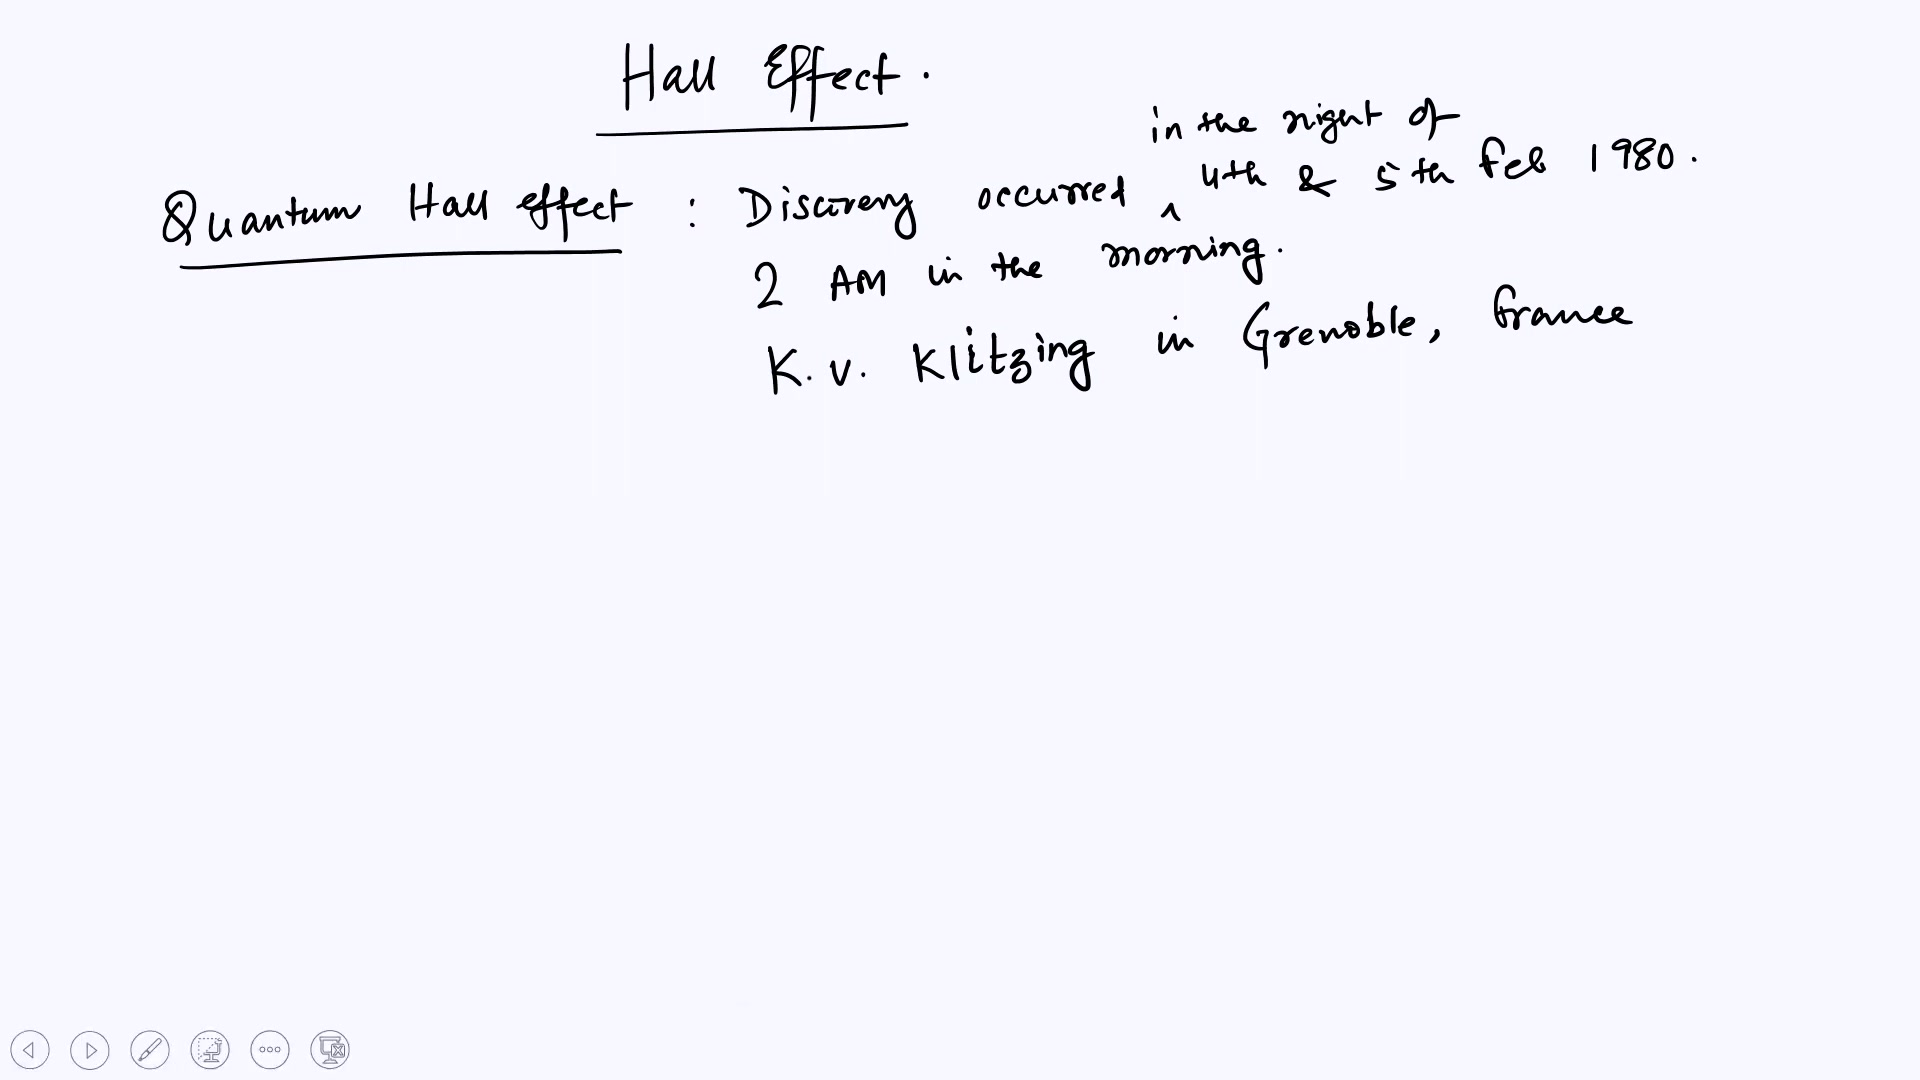 Hall Effect.
in the night of
Quantum Hall effect : Discovery occurred ^ 4th & 5th Feb 1980.
2 AM in the morning.
K. v. Klitzing in Grenoble, France